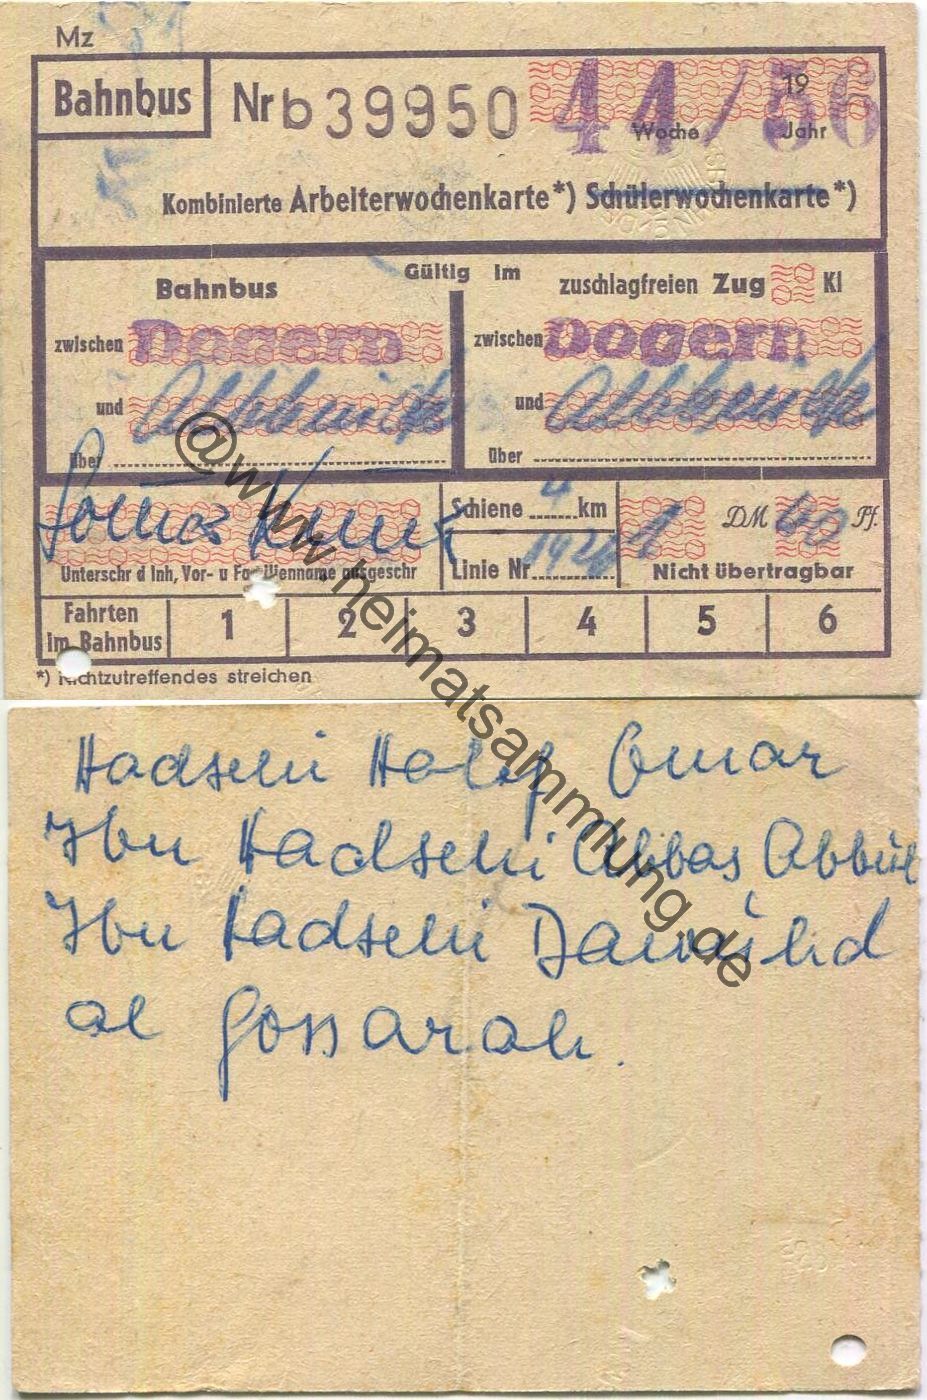 Mz
Bahnbus Nr b 39950 44/56
19
Woche Jahr
Kombinierte Arbeiterwochenkarte *) Schülerwochenkarte *)
Gültig im
Bahnbus zuschlagfreien Zug Kl
zwischen Dogern zwischen Dogern
und Albbruck und Albbruck
über über
Schiene 4 km
1 DM 60 Pf.
Linie Nr.
Unterschr d Inh, Vor- u Familienname ausgeschr
Nicht übertragbar
Fahrten im Bahnbus 1 2 3 4 5 6
*) Nichtzutreffendes streichen
Hadschi Halef Omar
Ibn Hadschi Abbas Abbul
Ibn Hadschi Dawuhd
al Gossarah.
@www.heimatsammlung.de